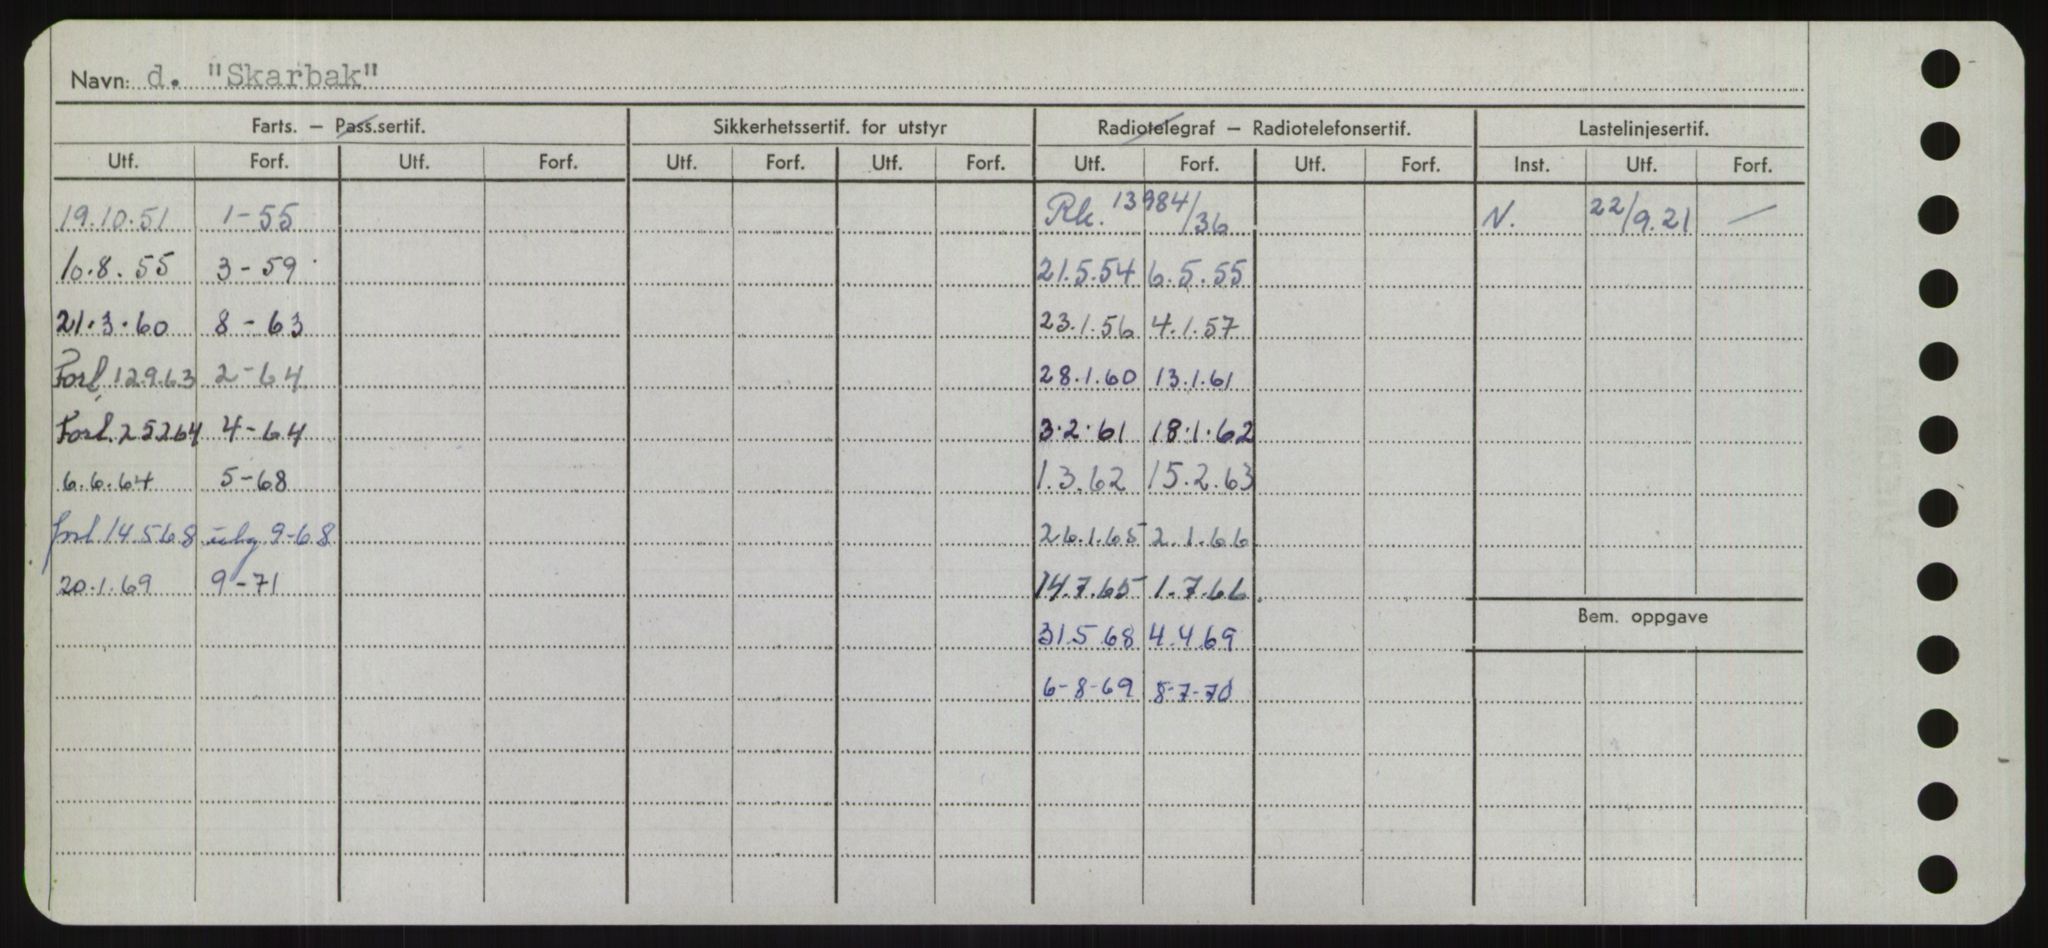 Navn: d. "Skarbak"
Farts. – Pass.sertif. Sikkerhetssertif. for utstyr Radiotelegraf – Radiotelefonsertif. Lastelinjesertif.
Utf. Forf. Utf. Forf. Utf. Forf. Utf. Forf. Utf. Forf. Utf. Forf. Inst. Utf. Forf.
19.10.51 1-55 Rk. 13984/36 N. 22/9.21 —
10.8.55 3-59 21.5.54 6.5.55
21.3.60 8-63 23.1.56 4.1.57
Forl. 12.9.63 2-64 28.1.60 13.1.61
Forl. 25264 4-64 3.2.61 18.1.62
6.6.64 5-68 1.3.62 15.2.63
forl. 14.5.68 9-68 26.1.65 2.1.66
20.1.69 9-71 14.7.65 1.7.66
Bem. oppgave
31.5.68 4.4.69
6-8-69 8-7-70